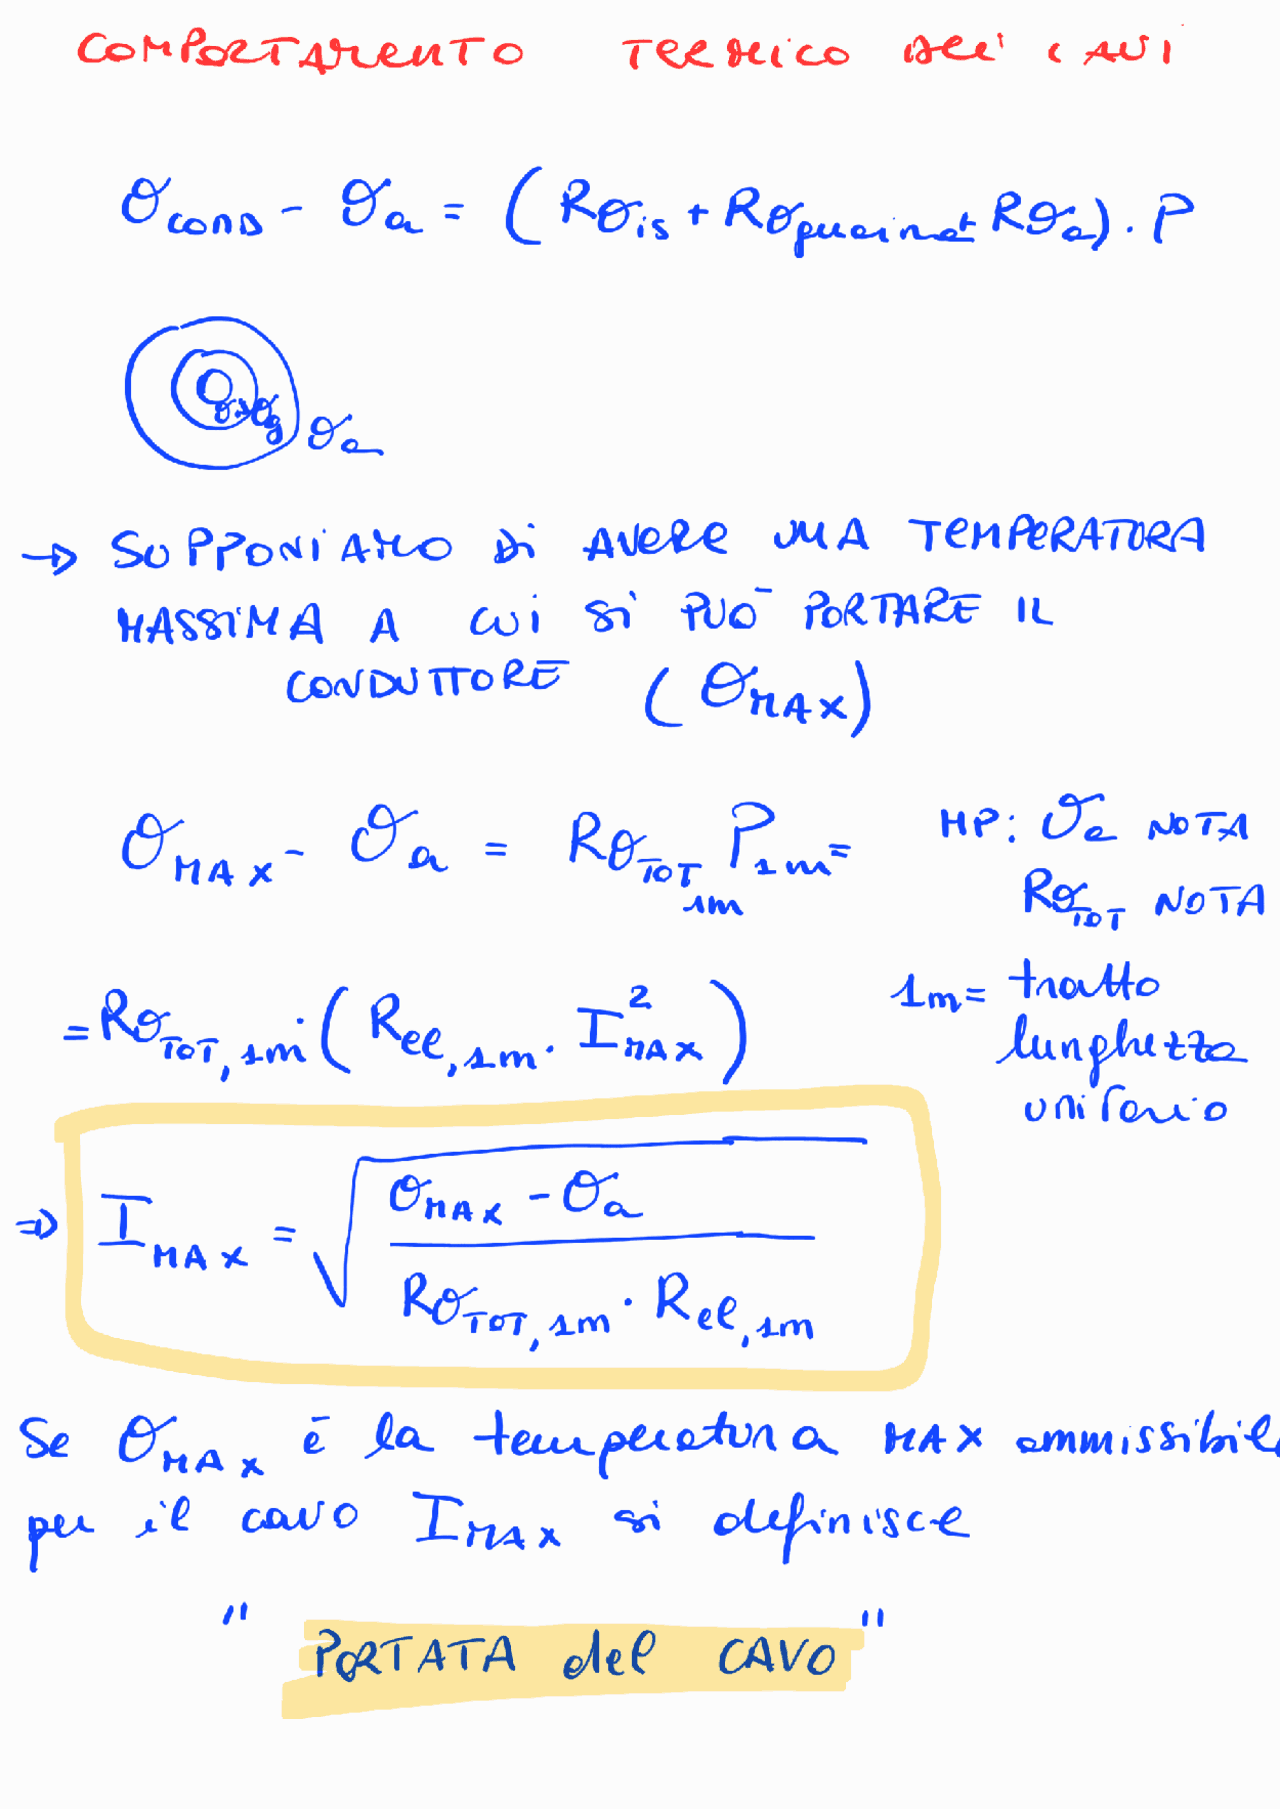 COMPORTAMENTO TERMICO DEI CAVI
θcond - θa = (Rθis + Rθguaina + Rθa) · P
θis θg θa
→ SUPPONIAMO DI AVERE UNA TEMPERATURA
MASSIMA A CUI SI PUÒ PORTARE IL
CONDUTTORE (θMAX)
θMAX - θa = RθTOT 1m P1m =
HP: θa NOTA
RθTOT NOTA
= RθTOT,1m · (Rel,1m · I²MAX)
1m = tratto
lunghezza
unitario
⇒ IMAX = √((θMAX - θa) / (RθTOT,1m · Rel,1m))
Se θMAX è la temperatura MAX ammissibile
per il cavo IMAX si definisce
" PORTATA del CAVO "